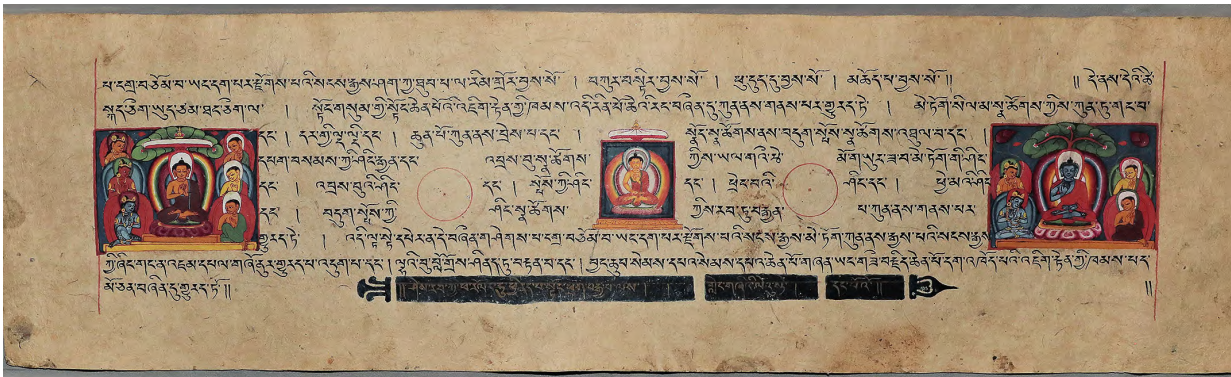 པ་དགྲ་བཅོམ་བ་ཡང་དག་པར་རྫོགས་པའི་སངས་རྒྱས་ཤཀ་ཀྱ་ཐུབ་པ་ལ་རིམ་གྲོར་བྱས་སོ་ ། བཀུར་བསྟིར་བྱས་སོ་ ། ཕུ་དུད་དུ་བྱས་སོ་ ། མཆོད་པ་བྱས་སོ༎ ༎ དེ་ནས་དེའི་ཚེ་
སྐད་ཅིག་ཡུད་ཙམ་ཐང་ཅིག་ལ་ ། སྟོང་གསུམ་གྱི་སྟོང་ཆེན་པོའི་འཇིག་རྟེན་ཀྱི་ཁམས་འདི་རིན་པོ་ཆེའི་རང་བཞིན་དུ་ཀུན་ནས་གནས་པར་གྱུརད་ཏེ་ ། མེ་ཏོག་སིལ་མ་སྣ་ཚོགས་ཀྱིས་ཀུན་ཏུ་གང་བ་
དང་ ། དར་གྱི་ལྡ་ལྡི་དང་ ། ཆུན་པོ་ཀུན་ནས་བྲེས་པ་དང་ ། སྣོད་སྣ་ཚོགས་ནས་བདུག་སྤོས་སྣ་ཚོགས་འཐུལ་བ་དང་ །
དཔག་བསམས་ཀྱི་ཤིང་རྒྱན་དང་ འབྲས་བུ་སྣ་ཚོགས་ ཀྱིས་ཡལ་གའི་ མེ་ཏོག་གི་ཤིང་
དང་ ། འབྲས་བུའི་ཤིང་ དང་ ། སྤོས་ཀྱི་ཤིང་ དང་ ། ཕྲེང་བའི་ ཤིང་དང་ ། ཕྱེ་མའི་ཤིང་
དང་ ། བདུག་སྤོས་ཀྱི་ ཤིང་སྣ་ཚོགས་ ཀྱིས་རབ་ཏུ་བརྒྱན་ པ་ཀུན་ནས་གནས་པར་
གྱུརད་ཏེ་ ། འདི་ལྟ་སྟེ་དཔེར་ན་དེ་བཞིན་གཤེགས་པ་དགྲ་བཅོམ་བ་ཡང་དག་པར་རྫོགས་པའི་སངས་རྒྱས་མེ་ཏོག་ཀུན་ནས་རྒྱས་པའི་སངས་རྒྱས་
ཀྱི་ཞིང་གང་ན་འཇམ་དཔལ་གཞོནུར་གྱུརད་པ་འདུག་པ་དང་ ། ལྷའི་བུ་བློ་གྲོས་ཤིནད་ཏུ་བརྟན་བ་དང་ ། བྱང་ཆུབ་སེམས་དཔའ་སེམས་དཔའ་ཆེན་པོ་གཞན་ཡང་གཟི་བརྗིད་ཆེན་པོ་དག་འཁོད་པའི་འཇིག་རྟེན་ཀྱི་ཁམས་པད་
མོ་ཅན་བཞིན་དུ་གྱུརད་ཏོ༎ ༎